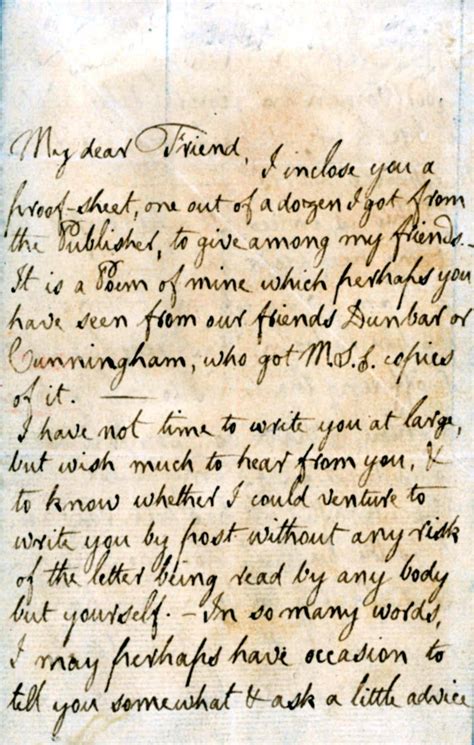 My dear Friend,
I inclose you a
proof-sheet, one out of a dozen I got from
the Publisher, to give among my friends.—
It is a Poem of mine which perhaps you
have seen from our friends Dunbar or
Cunningham, who got M.S.S. copies
of it. —
I have not time to write you at large,
but wish much to hear from you, &
to know whether I could venture to
write you by post without any risk
of the letter being read by any body
but yourself. — In so many words,
I may perhaps have occasion to
tell you somewhat & ask a little advice